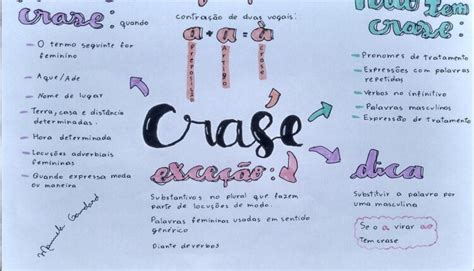 crase: quando
- O termo seguinte for
feminino
- Aque/Ade
- Nome de lugar
- Terra, casa e distância
determinadas.
- Hora determinada
- Locuções adverbiais
femininas
- Quando expressa moda
ou maneira
contração de duas vogais:
a + a = à
Preposição
Artigo
crase
Crase
exceção:
Substantivos no plural que fazem
parte de locuções de modo.
Palavras femininas usadas em sentido
genérico
Diante de verbos
tem
crase:
- Pronomes de tratamento
- Expressões com palavras
repetidas
- Verbos no infinitivo
- Palavras masculinas
- Expressão de tratamento
dica
Substituir a palavra por
uma masculina
Se o a virar ao
Tem crase